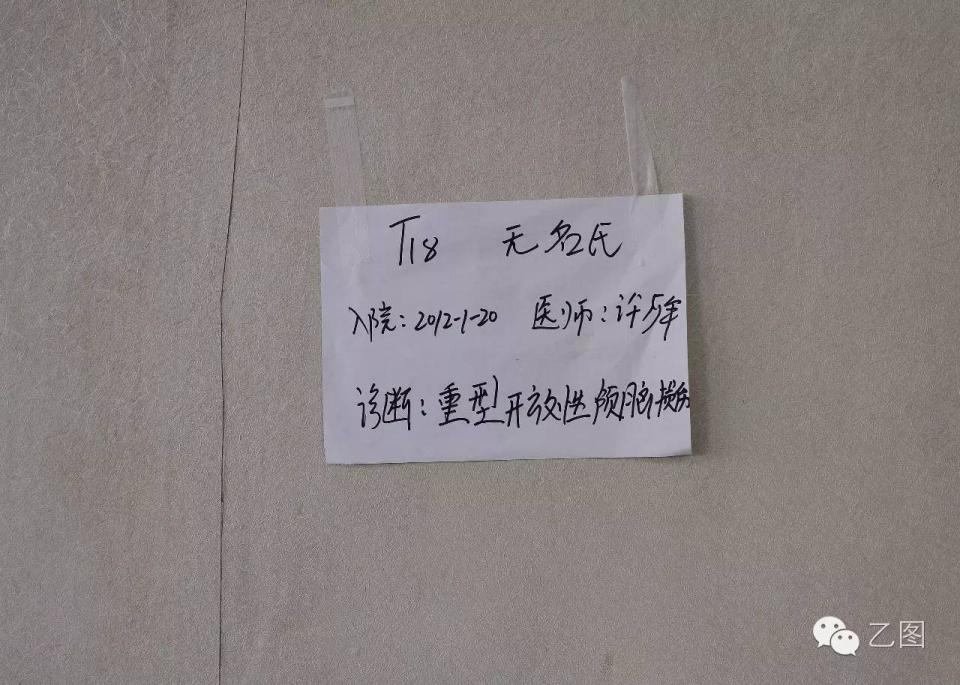 T18 无名氏
入院：2012-1-20 医师：许
诊断：重型开放性颅脑损伤
乙图